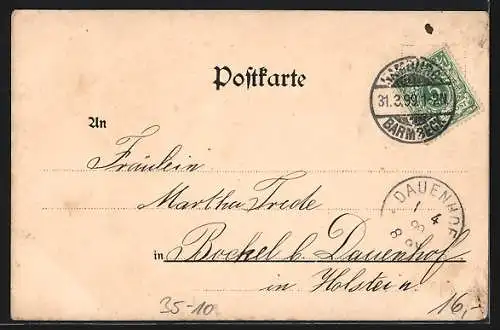 Postkarte
HAMBURG
31.3.99. 1-2N
BARMBECK
An
Fräulein
Martha Trede
DAUENHOF
1
4
in Bockel b. Dauenhof
in Holstein.
35-10
16,-